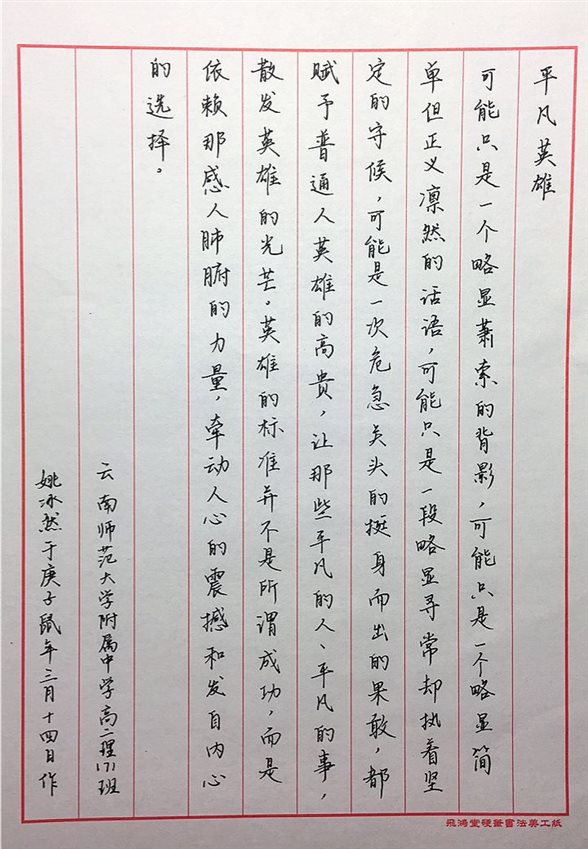 平凡英雄
可能只是一个略显萧索的背影，可能只是一个略显简
单但正义凛然的话语，可能只是一段略显寻常却执着坚
定的守候，可能是一次危急关头的挺身而出的果敢，都
赋予普通人英雄的高贵，让那些平凡的人、平凡的事，
散发英雄的光芒。英雄的标准并不是所谓成功，而是
依赖那感人肺腑的力量，牵动人心的震撼和发自内心
的选择。
云南师范大学附属中学高二理171班
姚泳然于庚子鼠年三月十四日作
飛鴻堂硬筆書法美工紙